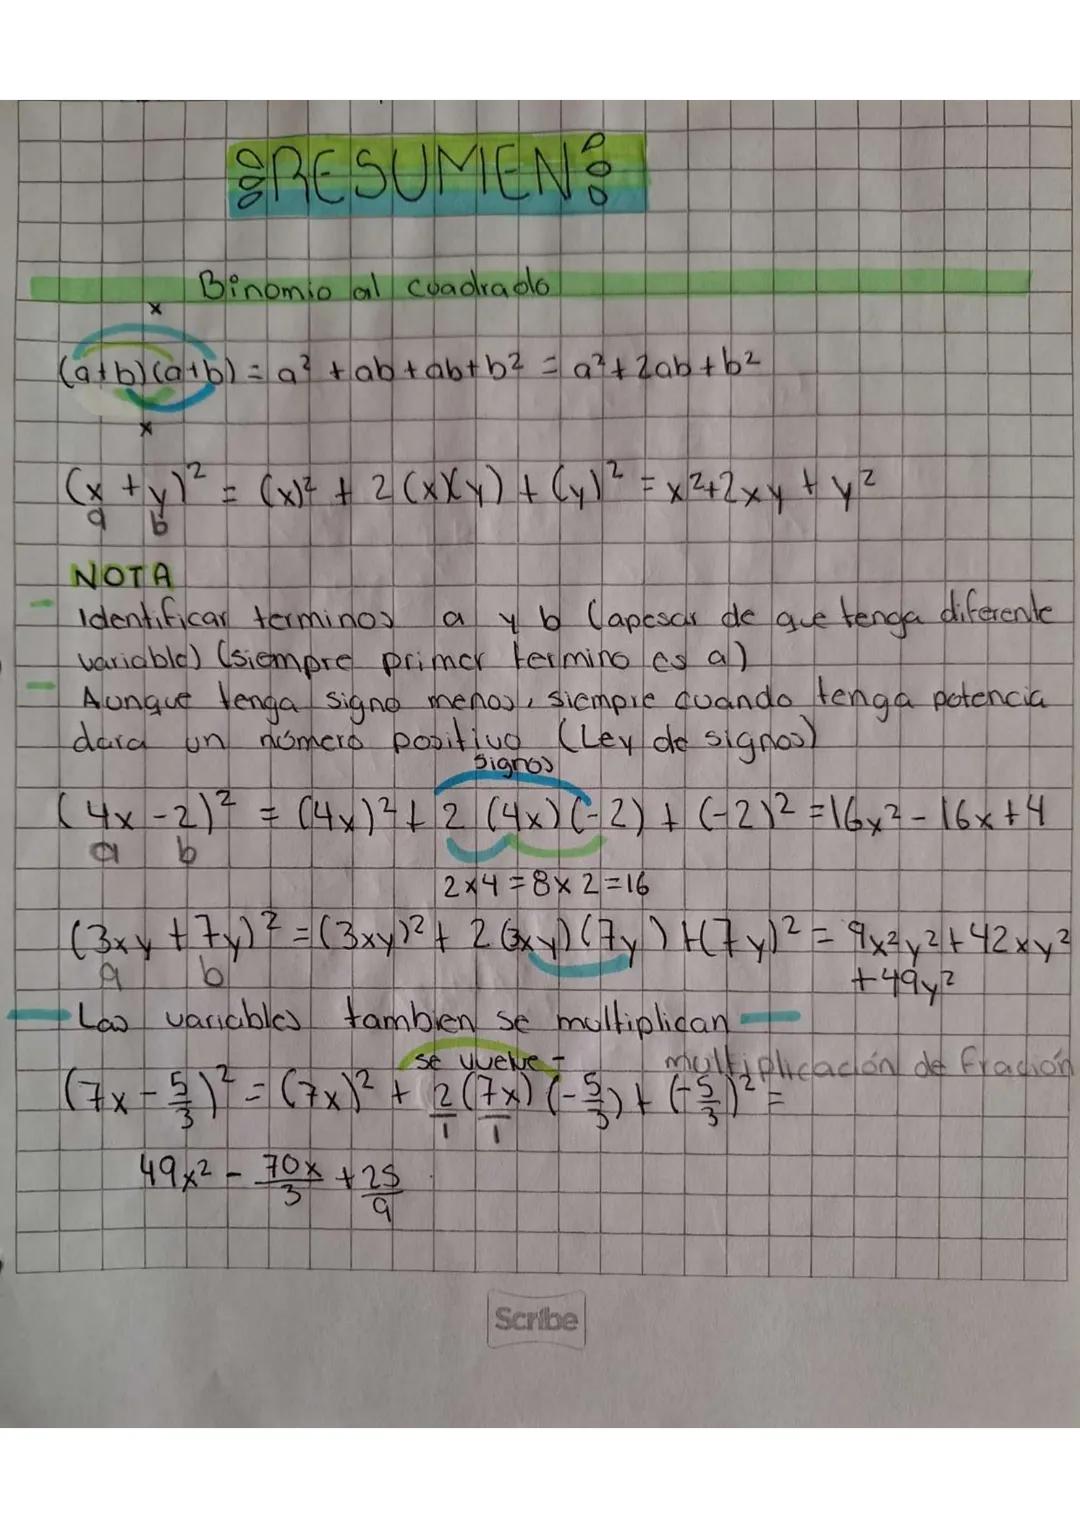 RESUMEN
Binomio al cuadrado
x
(a+b)(a+b) = a² + ab + ab + b² = a² + 2ab + b²
x
(x + y)² = (x)² + 2(x)(y) + (y)² = x²+2xy + y²
a b
NOTA
- Identificar terminos a y b (apesar de que tenga diferente
variable) (siempre primer termino es a)
- Aunque tenga signo menos, siempre cuando tenga potencia
dara un número positivo (Ley de signos)
signos
(4x -2)² = (4x)² + 2 (4x)(-2) + (-2)² = 16x² - 16x + 4
a b
2x4 = 8x2 = 16
(3xy + 7y)² = (3xy)² + 2(3xy)(7y) + (7y)² = 9x²y² + 42xy²
a b
+49y²
- Las variables tambien se multiplican -
se vuelve - multiplicación de fración
(7x - 5/3)² = (7x)² + 2/1 (7x/1) (-5/3) + (-5/3)² =
49x² - 70x/3 + 25/9
Scribe